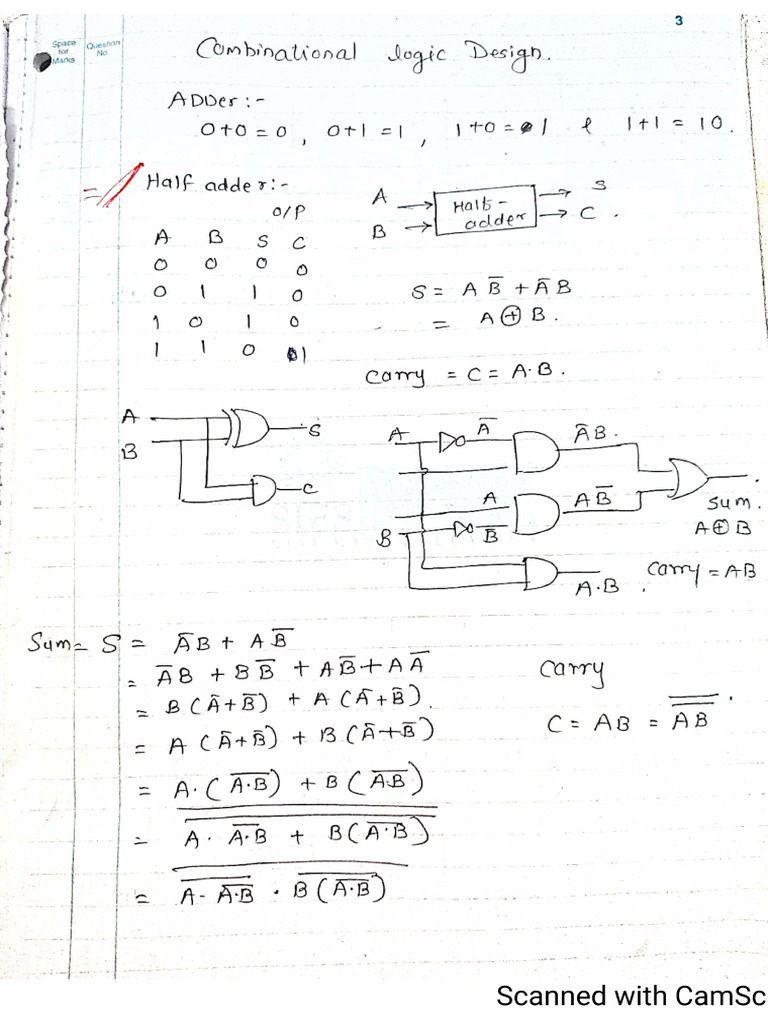 3
Space for Marks
Question No.
Combinational logic Design.
ADDer :-
0+0 = 0 , 0+1 = 1 , 1+0 = 1 & 1+1 = 10.
Half adder:-
A
B
Half-adder
S
C .
O/P
A B S C
0 0 0 0
0 1 1 0
1 0 1 0
1 1 0 1
S = A B̅ + A̅ B
= A ⊕ B .
Carry = C = A·B .
A
B
S
C
A
A̅
A̅ B .
A
A B̅
B
B̅
Sum .
A ⊕ B
A·B .
Carry = AB
Sum = S = A̅ B + A B̅
= A̅ B + B B̅ + A B̅ + A A̅
= B ( A̅ + B̅ ) + A ( A̅ + B̅ ) .
= A ( A̅ + B̅ ) + B ( A̅ + B̅ )
= A·( A̅·̅B̅ ) + B ( A̅B̅ )
= A · A̅·̅B̅ + B ( A̅·̅B̅ )
= A · A̅·̅B̅ · B ( A̅·̅B̅ )
Carry
C = AB = A̅B̅ .
Scanned with CamSc